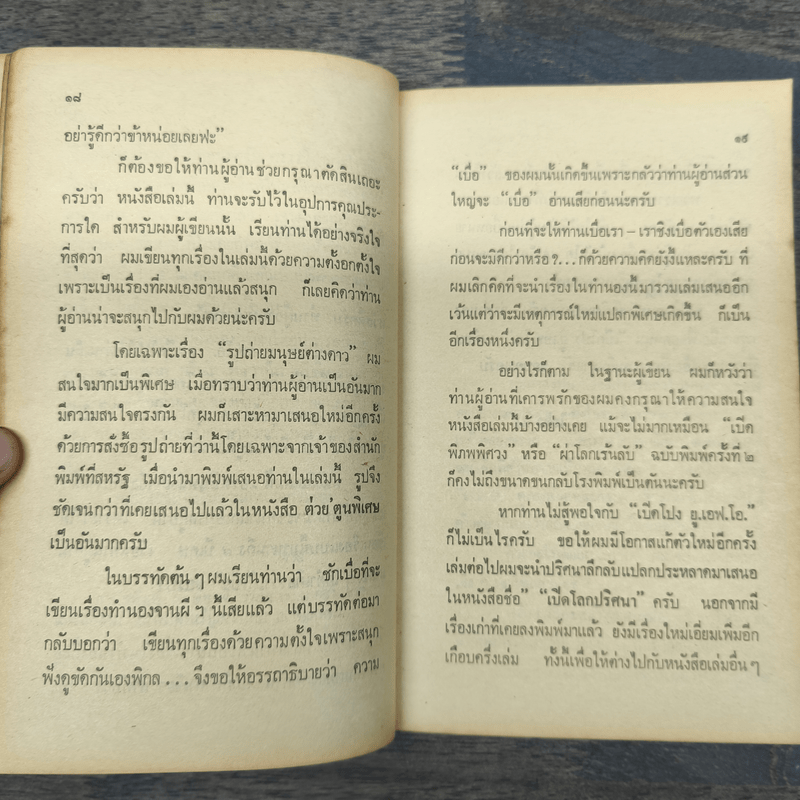 ๑๘
อย่ารู้ดีกว่าข้าหน่อยเลยฟะ”
ก็ต้องขอให้ท่านผู้อ่านช่วยกรุณาตัดสินเถอะ
ครับว่า หนังสือเล่มนี้ ท่านจะรับไว้ในอุปการคุณประ-
การใด สำหรับผมผู้เขียนนั้น เรียนท่านได้อย่างจริงใจ
ที่สุดว่า ผมเขียนทุกเรื่องในเล่มนี้ด้วยความตั้งอกตั้งใจ
เพราะเป็นเรื่องที่ผมเองอ่านแล้วสนุก ก็เลยคิดว่าท่าน
ผู้อ่านน่าจะสนุกไปกับผมด้วยน่ะครับ
โดยเฉพาะเรื่อง “รูปถ่ายมนุษย์ต่างดาว” ผม
สนใจมากเป็นพิเศษ เมื่อทราบว่าท่านผู้อ่านเป็นอันมาก
มีความสนใจตรงกัน ผมก็เสาะหามาเสนอใหม่อีกครั้ง
ด้วยการสั่งซื้อรูปถ่ายที่ว่านี้โดยเฉพาะจากเจ้าของสำนัก
พิมพ์ที่สหรัฐ เมื่อนำมาพิมพ์เสนอท่านในเล่มนี้ รูปจึง
ชัดเจนกว่าที่เคยเสนอไปแล้วในหนังสือ ต่วย'ตูนพิเศษ
เป็นอันมากครับ
ในบรรทัดต้น ๆ ผมเรียนท่านว่า ชักเบื่อที่จะ
เขียนเรื่องทำนองจานผี ฯ นี้เสียแล้ว แต่บรรทัดต่อมา
กลับบอกว่า เขียนทุกเรื่องด้วยความตั้งใจเพราะสนุก
ฟังดูขัดกันเองพิกล ... จึงขอให้อรรถาธิบายว่า ความ
๑๙
“เบื่อ” ของผมนั้นเกิดขึ้นเพราะกลัวว่าท่านผู้อ่านส่วน
ใหญ่จะ “เบื่อ” อ่านเสียก่อนน่ะครับ
ก่อนที่จะให้ท่านเบื่อเรา – เราชิงเบื่อตัวเองเสีย
ก่อนจะมิดีกว่าหรือ ?... ก็ด้วยความคิดยังงี้แหละครับ ที่
ผมเลิกคิดที่จะนำเรื่องในทำนองนี้มารวมเล่มเสนออีก
เว้นแต่ว่าจะมีเหตุการณ์ใหม่แปลกพิเศษเกิดขึ้น ก็เป็น
อีกเรื่องหนึ่งครับ
อย่างไรก็ตาม ในฐานะผู้เขียน ผมก็หวังว่า
ท่านผู้อ่านที่เคารพรักของผมคงกรุณาให้ความสนใจ
หนังสือเล่มนี้บ้างอย่างเคย แม้จะไม่มากเหมือน “เปิด
พิภพพิศวง” หรือ “ผ่าโลกเร้นลับ” ฉบับพิมพ์ครั้งที่ ๒
ก็คงไม่ถึงขนาดขนกลับโรงพิมพ์เป็นตันนะครับ
หากท่านไม่สู้พอใจกับ “เปิดโปง ยู.เอฟ.โอ.”
ก็ไม่เป็นไรครับ ขอให้ผมมีโอกาสแก้ตัวใหม่อีกครั้ง
เล่มต่อไปผมจะนำปริศนาลึกลับแปลกประหลาดมาเสนอ
ในหนังสือชื่อ” “เปิดโลกปริศนา” ครับ นอกจากมี
เรื่องเก่าที่เคยลงพิมพ์มาแล้ว ยังมีเรื่องใหม่เอี่ยมเพิ่มอีก
เกือบครึ่งเล่ม ทั้งนี้เพื่อให้ต่างไปกับหนังสือเล่มอื่น ๆ